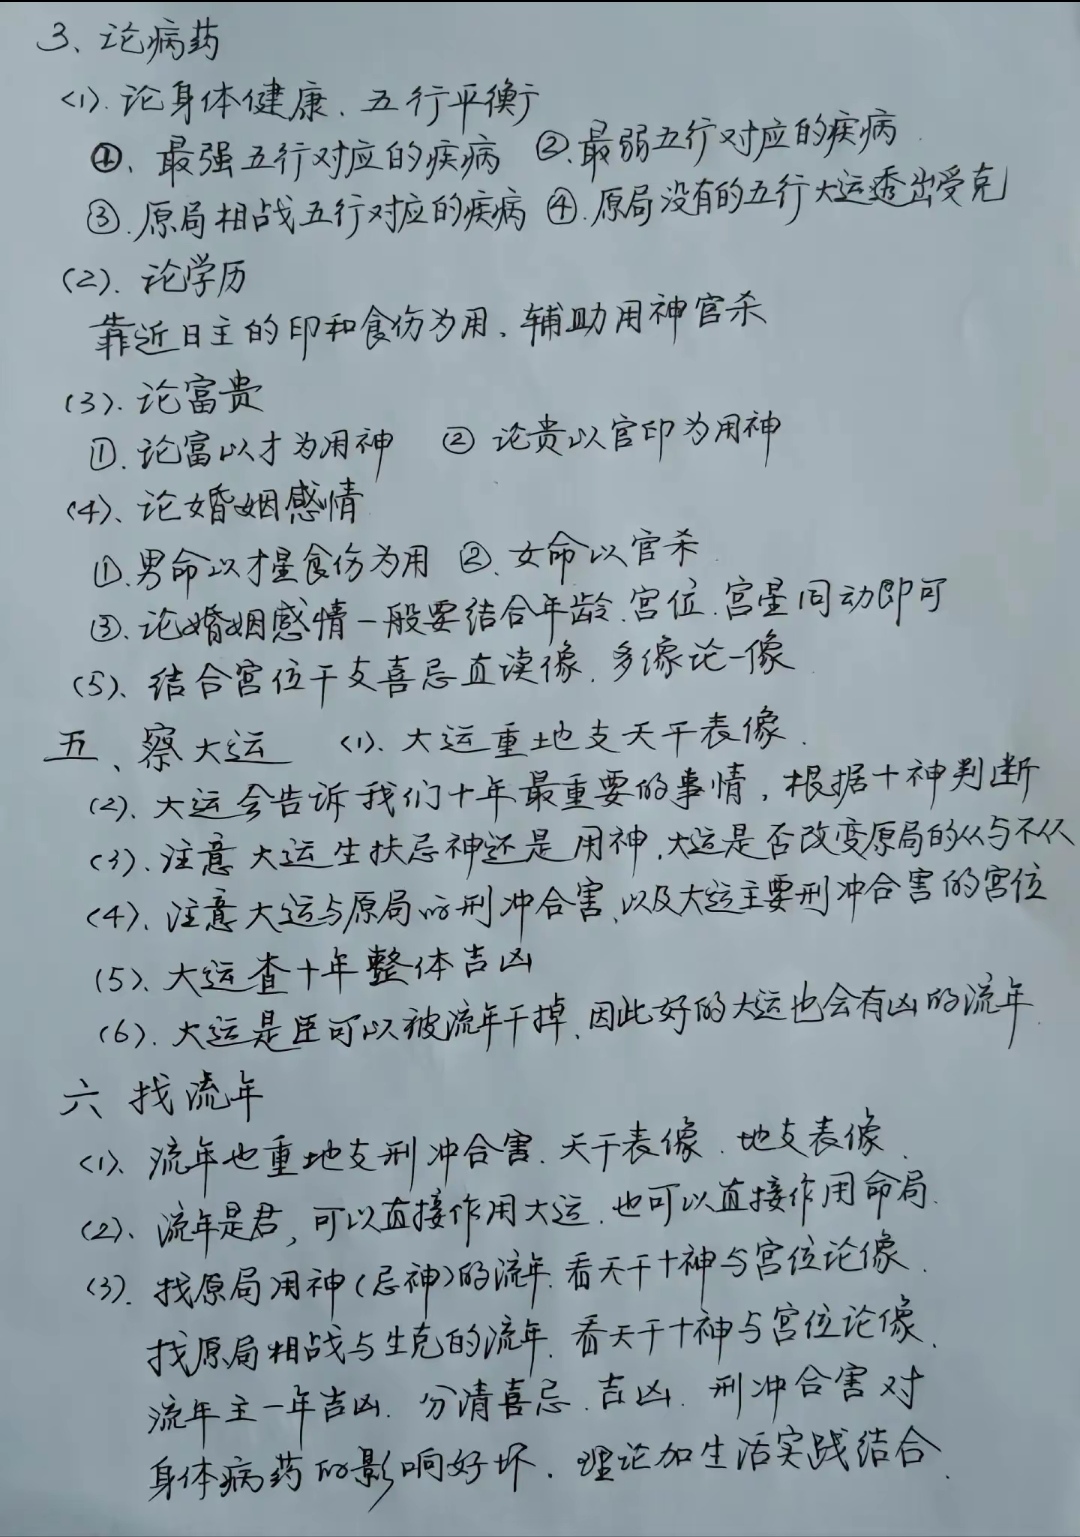 3、论病药
(1). 论身体健康、五行平衡
①、最强五行对应的疾病 ②.最弱五行对应的疾病.
③.原局相战五行对应的疾病 ④.原局没有的五行大运透出受克
(2). 论学历
靠近日主的印和食伤为用、辅助用神官杀
(3). 论富贵
①.论富以才为用神 ② 论贵以官印为用神
(4)、论婚姻感情
①.男命以才星食伤为用 ②.女命以官杀
③.论婚姻感情一般要结合年龄.宫位.宫星同动即可
(5)、结合宫位干支喜忌直读像.多像论一像
五、察大运 (1).大运重地支天干表像.
(2).大运会告诉我们十年最重要的事情,根据十神判断
(3).注意大运生扶忌神还是用神.大运是否改变原局的从与不从
(4)、注意大运与原局的刑冲合害、以及大运主要刑冲合害的宫位
(5).大运查十年整体吉凶
(6).大运是臣可以被流年干掉、因此好的大运也会有凶的流年.
六 找流年
(1).流年也重地支刑冲合害.天干表像.地支表像.
(2)、流年是君,可以直接作用大运.也可以直接作用命局.
(3).找原局用神(忌神)的流年.看天干十神与宫位论像.
找原局相战与生克的流年.看天干十神与宫位论像.
流年主一年吉凶.分清喜忌.吉凶.刑冲合害对
身体病药的影响好坏.理论加生活实践结合.